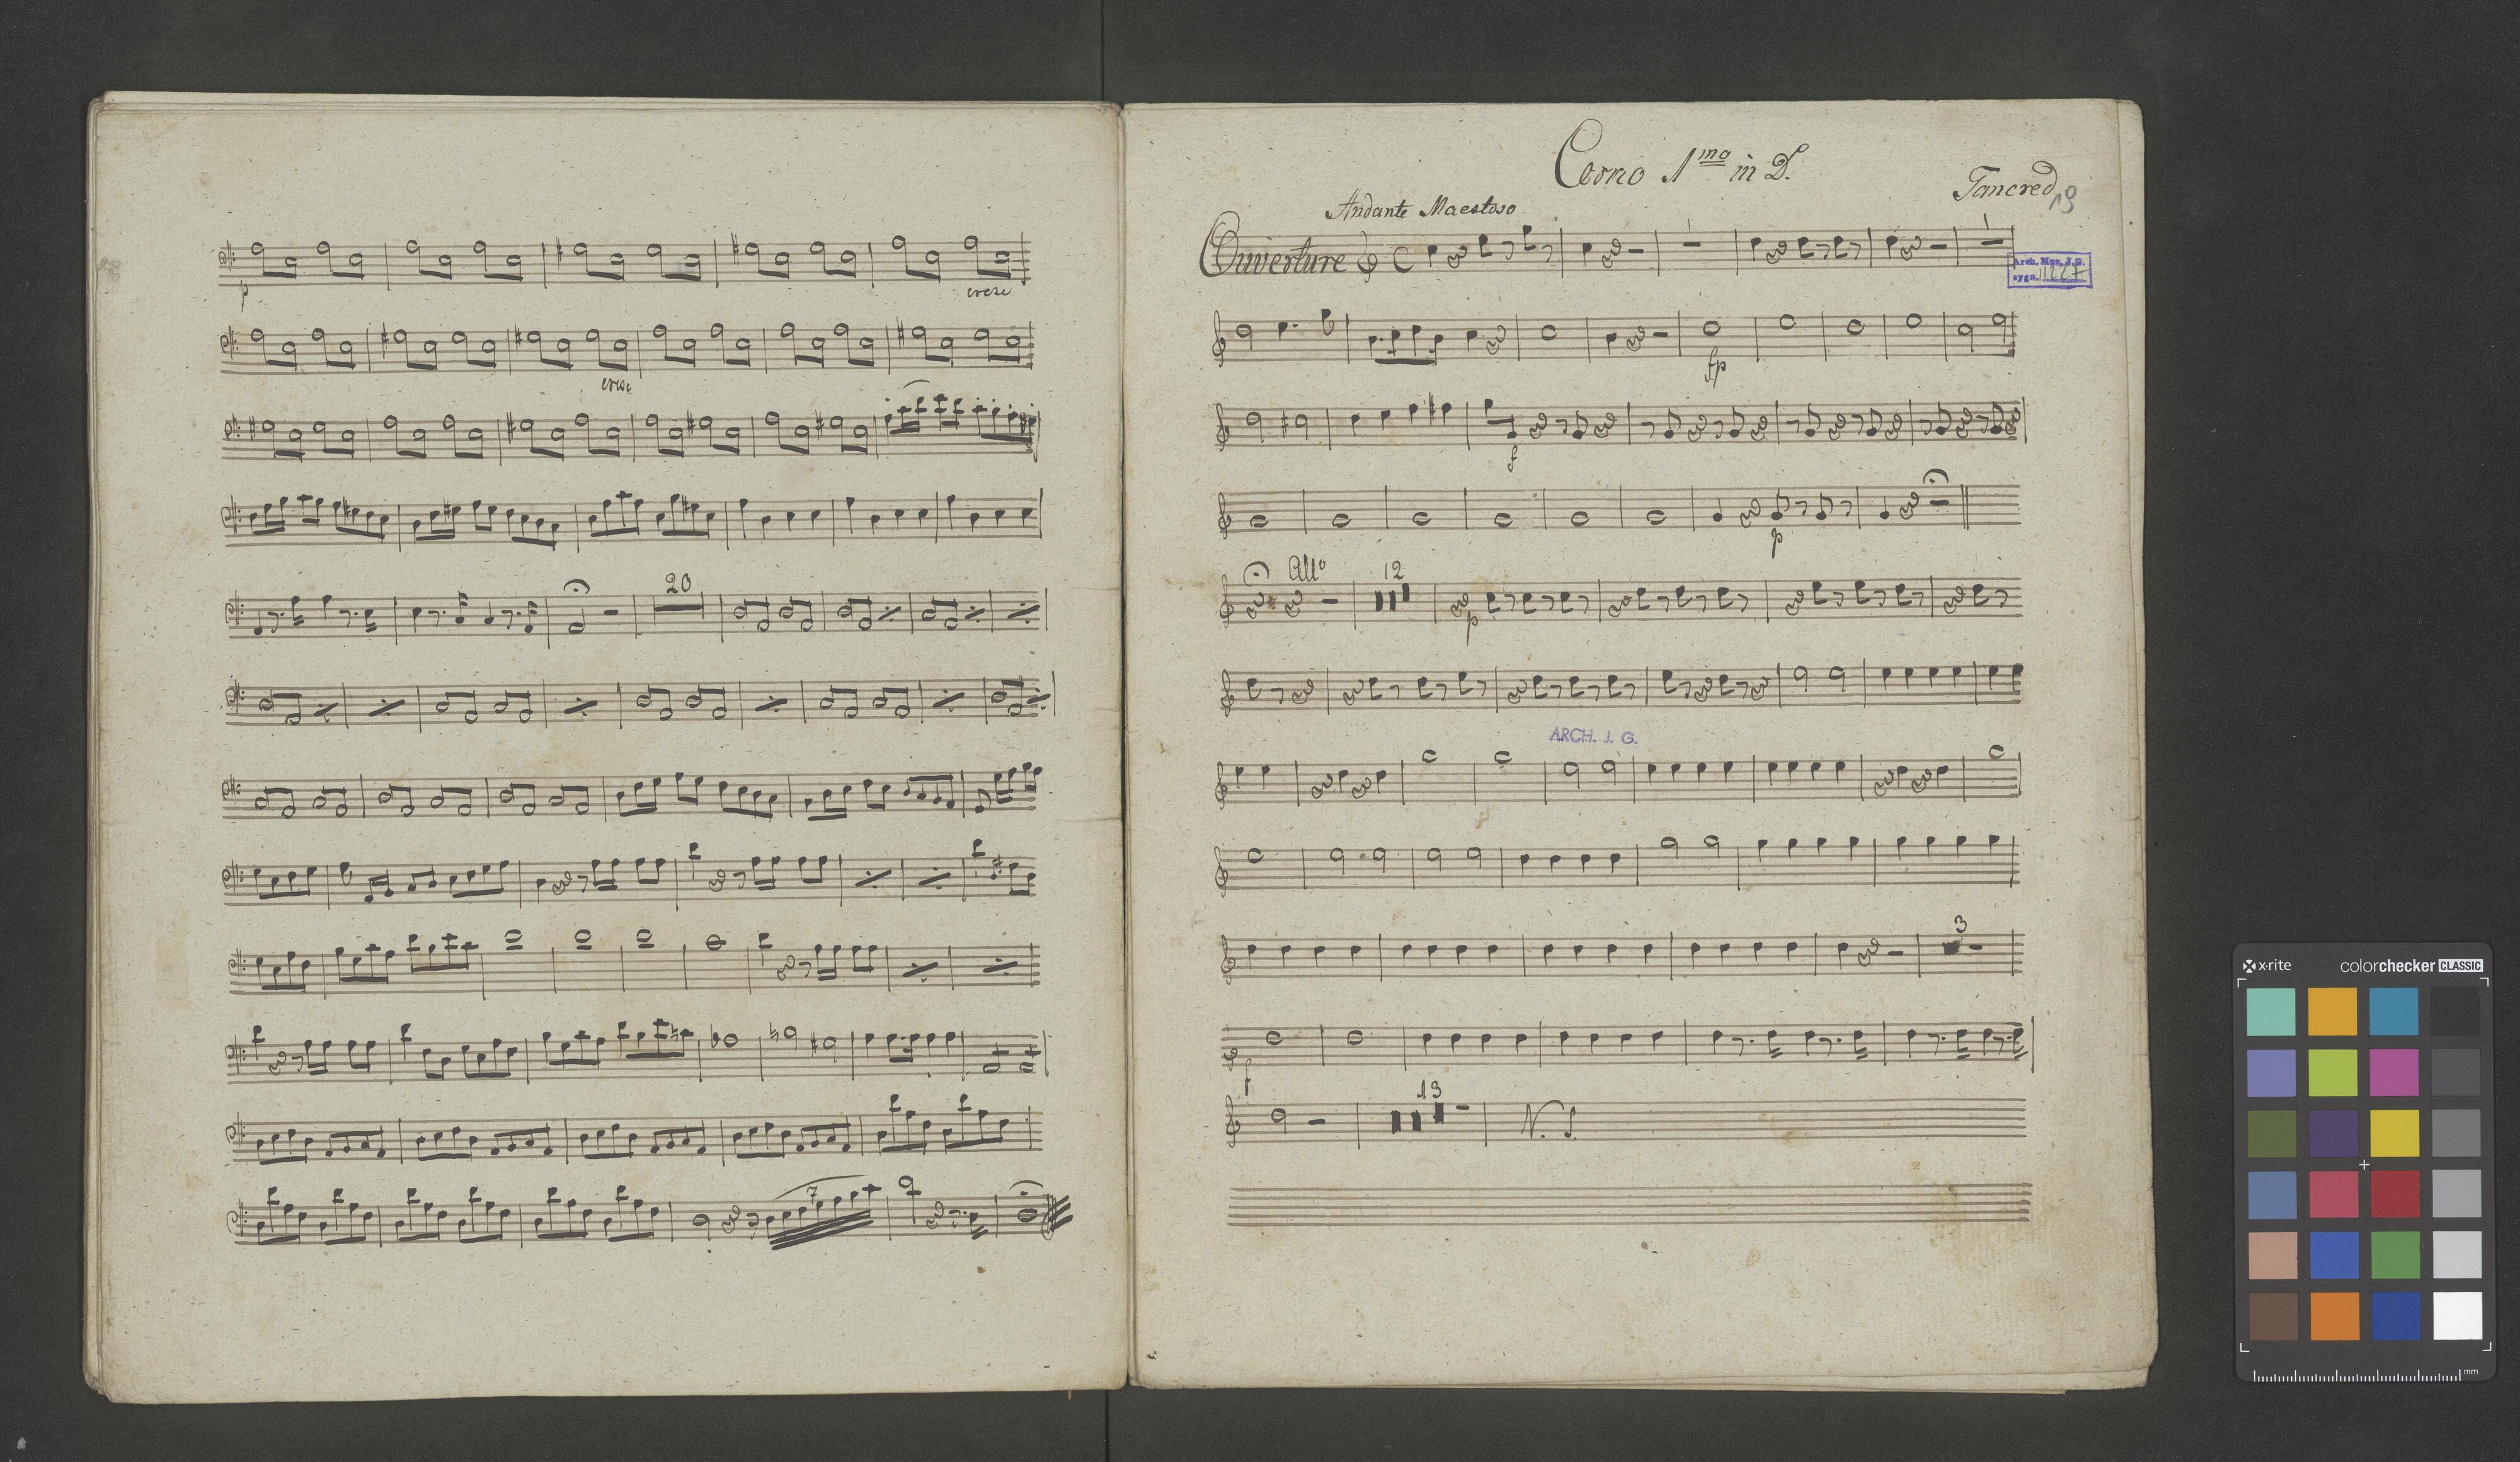 p
cresc
cresc
20
7
Corno 1mo in D.
Tancred
19
Andante Maestoso
Ouverture
1
Arch. Muz. J.G.
sygn.
fp
f
p
Allo
12
p
ARCH. J. G.
3
f
13
x·rite
colorchecker CLASSIC
mm